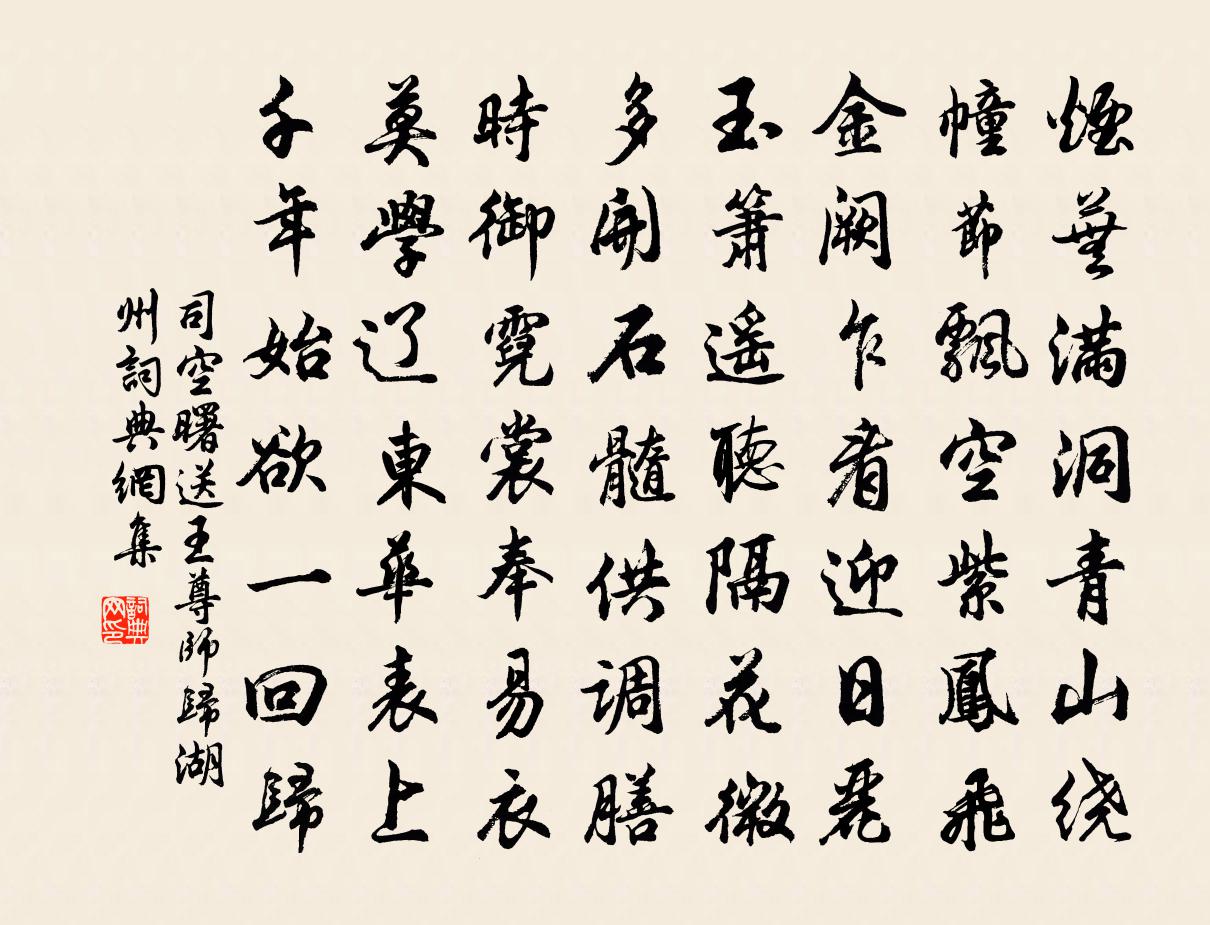 煙蕪滿洞青山绕
幢節飄空紫鳳飛
金闕乍看迎日麗
玉簫遥聽隔花微
多開石髓供调膳
時御霓裳奉易衣
莫學辽東華表上
千年始欲一回歸
司空曙送王尊師歸湖
州詞典網集
詞典网印